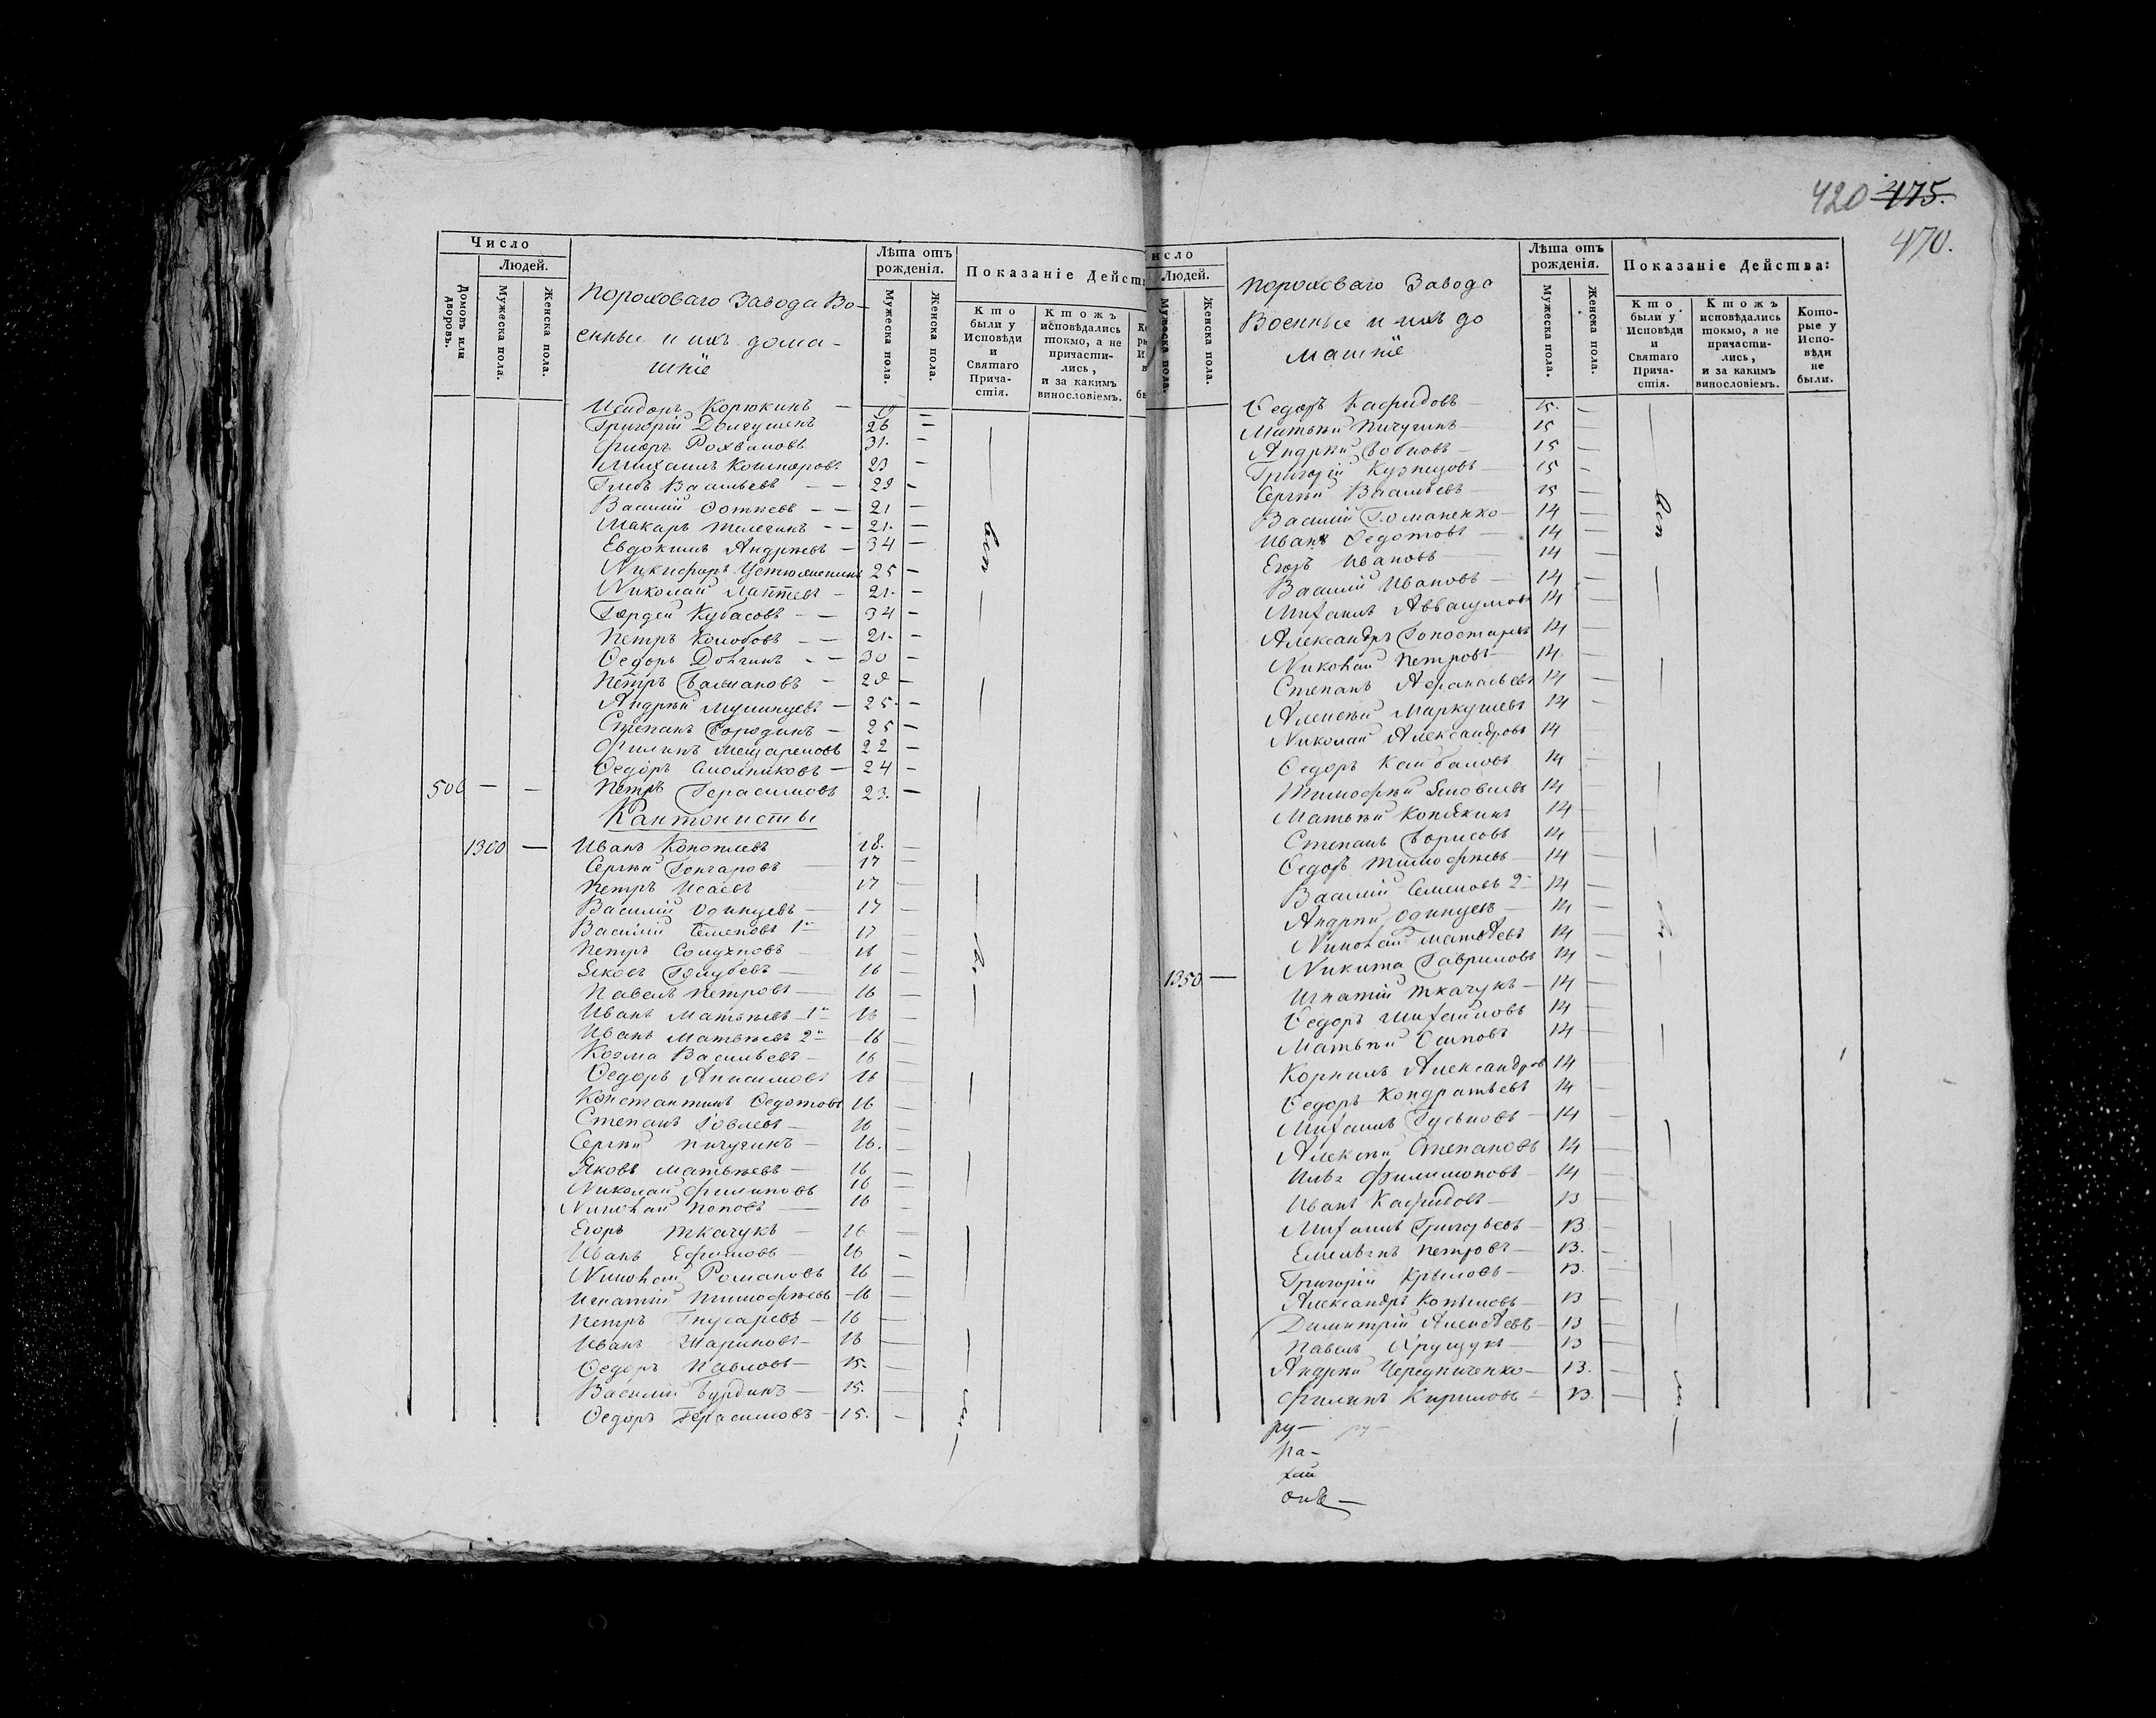 Число
Людей.
Домовъ или дворовъ.
Мужеска пола.
Женска пола.
Пороховаго Завода Во-
енные и ихъ дома-
шніе
Лѣта отъ рожденія.
Мужеска пола.
Женска пола.
Показаніе Действ
Кто были у Исповѣди и Святаго Прича-стія.
Ктожъ исповѣдались токмо, а не причасти-лись, и за какимъ винословіемъ.
Исидоръ Корюкинъ —
Григорій Долгушенъ 26 —
31. —
Михаилъ 23 —
Глебъ Васильевъ — — 29 —
Василій Фотіевъ — — 21 —
Макаръ Телегинъ — — 21. —
Евдокимъ Андрѣевъ — 34 —
Никифоръ 25 —
Николай Лаптевъ — 21. —
Гордей Кубасовъ — — 34 —
Петръ Колобовъ — — 21. —
Ѳедоръ Долгинъ — — 30 —
Петръ Балмановъ — —
Андрѣй — 25. —
Степанъ Бородинъ — 25 —
Филипъ 22 —
Ѳедоръ Смольниковъ — 24 —
500 — — Петръ Герасимовъ 23. —
Кантонисты
1300 — Иванъ 18.
Сергѣй Гончаровъ — 17 —
Петръ Исаевъ 17 —
Василій Одинцевъ — 17 —
Василій Семеновъ 1й 17 —
Петръ 16 —
Яковъ Голубевъ — 16 —
Павелъ Петровъ — 16 —
Иванъ Матвѣевъ 1й 16 —
Иванъ Матвѣевъ 2й 16 —
Козма Васильевъ — 16 —
Ѳедоръ Анисимовъ 16 —
Константинъ Ѳедотовъ 16 —
Степанъ — 16 —
Сергѣй Пичугинъ — 16. —
Яковъ Матвѣевъ — 16 —
Николай Филиповъ 16 —
Николай Поповъ — 16 —
Егоръ Ткачукъ — 16 —
Иванъ Ефимовъ — 16 —
Николай Романовъ 16 —
Игнатій Тимофѣевъ 16 —
Петръ Гнусаревъ — 16 —
Иванъ Шариповъ 16 —
Ѳедоръ Павловъ — 15. —
Василій Бурдинъ — 15. —
Ѳедоръ Герасимовъ — 15. —
всѣ
420 475.
470.
исло
Людей.
Мужеска пола.
Женска пола.
Пороховаго Завода
Военные и ихъ до
машніе
Лѣта отъ рожденія.
Мужеска пола.
Женска пола.
Показаніе Действа:
Кто были у Исповѣди и Святаго Прича-стія.
Ктожъ исповѣдались токмо, а не причасти-лись, и за какимъ винословіемъ.
Кото-рые у Испо-вѣди не были.
Ѳедоръ Кафидовъ 15. —
Матвѣй Пичугинъ — 15 —
Андрѣй Бобковъ — 15 —
Григорій Кузнецовъ — 15 —
Сергѣй Васильевъ — 15 —
Василій Романенко — 14 —
Иванъ Ѳедотовъ — 14 —
Егоръ Ивановъ — 14 —
Василій Ивановъ — 14 —
Михаилъ Аввакумовъ 14 —
Александръ 14 —
Николай Петровъ — 14. —
Степанъ Афанасьевъ 14 —
Алексѣй Маркушевъ 14 —
Николай Александровъ 14
Ѳедоръ Канбаловъ 14 —
Тимофѣй Яковлевъ 14 —
Матвѣй Копѣйкинъ 14 —
Степанъ Борисовъ 14 —
Ѳедоръ Тимофѣевъ — 14 —
Василій Семеновъ 2й 14 —
Андрѣй Одинцевъ — 14 —
Николай Матвѣевъ 14 —
1350 — Никита Гавриловъ 14 —
Игнатій Ткачукъ — 14 —
Ѳедоръ Михайловъ 14 —
Матвѣй Осиповъ 14 —
Корнилъ Александровъ 14
Ѳедоръ Кондратьевъ 14 —
Михаилъ Гуськовъ — 14 —
Алексѣй Степановъ 14 —
Илья Филимоновъ — 14 —
Иванъ Кафидовъ — 13 —
Михаилъ Григорьевъ — 13 —
Емельянъ Петровъ — 13. —
Григорій Крыловъ — 13. —
Александръ Копыловъ — 13 —
Димитрій Алексѣевъ — 13 —
Павелъ Хрущукъ — 13 —
Андрѣй Чередниченко — 13. —
Филипъ Кириловъ — 13. —
всѣ
ру— ру—
па—
хай
онъ—